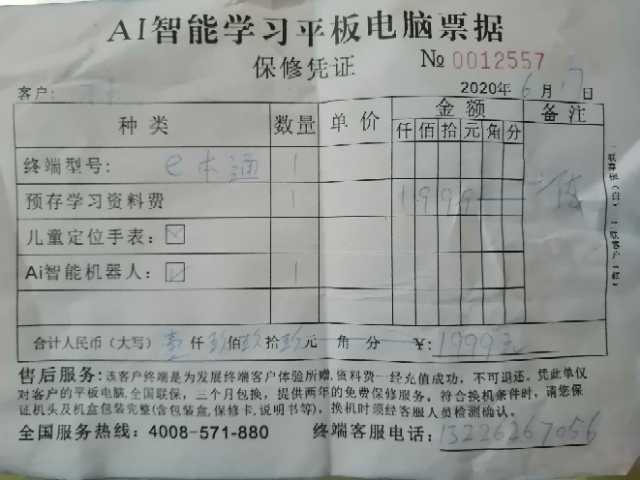 AI智能学习平板电脑票据
保修凭证 № 0012557
客户: 2020年6月17日
种类 数量 单价 金额 备注
仟 佰 拾 元 角 分
终端型号: e本通 1
预存学习资料费 1 1 9 9 9
儿童定位手表:
Ai智能机器人: 1
合计人民币(大写) 壹仟玖佰玖拾玖元 角 分 ¥: 1999元
售后服务: 该客户终端是为发展终端客户体验所赠,资料费一经充值成功,不可退还。凭此单仅
对客户的平板电脑,全国联保,三个月包换,提供两年的免费保修服务。符合换机条件时,请您保
证机头及机盒包装完整(含包装盒,保修卡,说明书等),换机时须经客服人员检测确认。
全国服务热线: 4008-571-880 终端客服电话: 13226267056